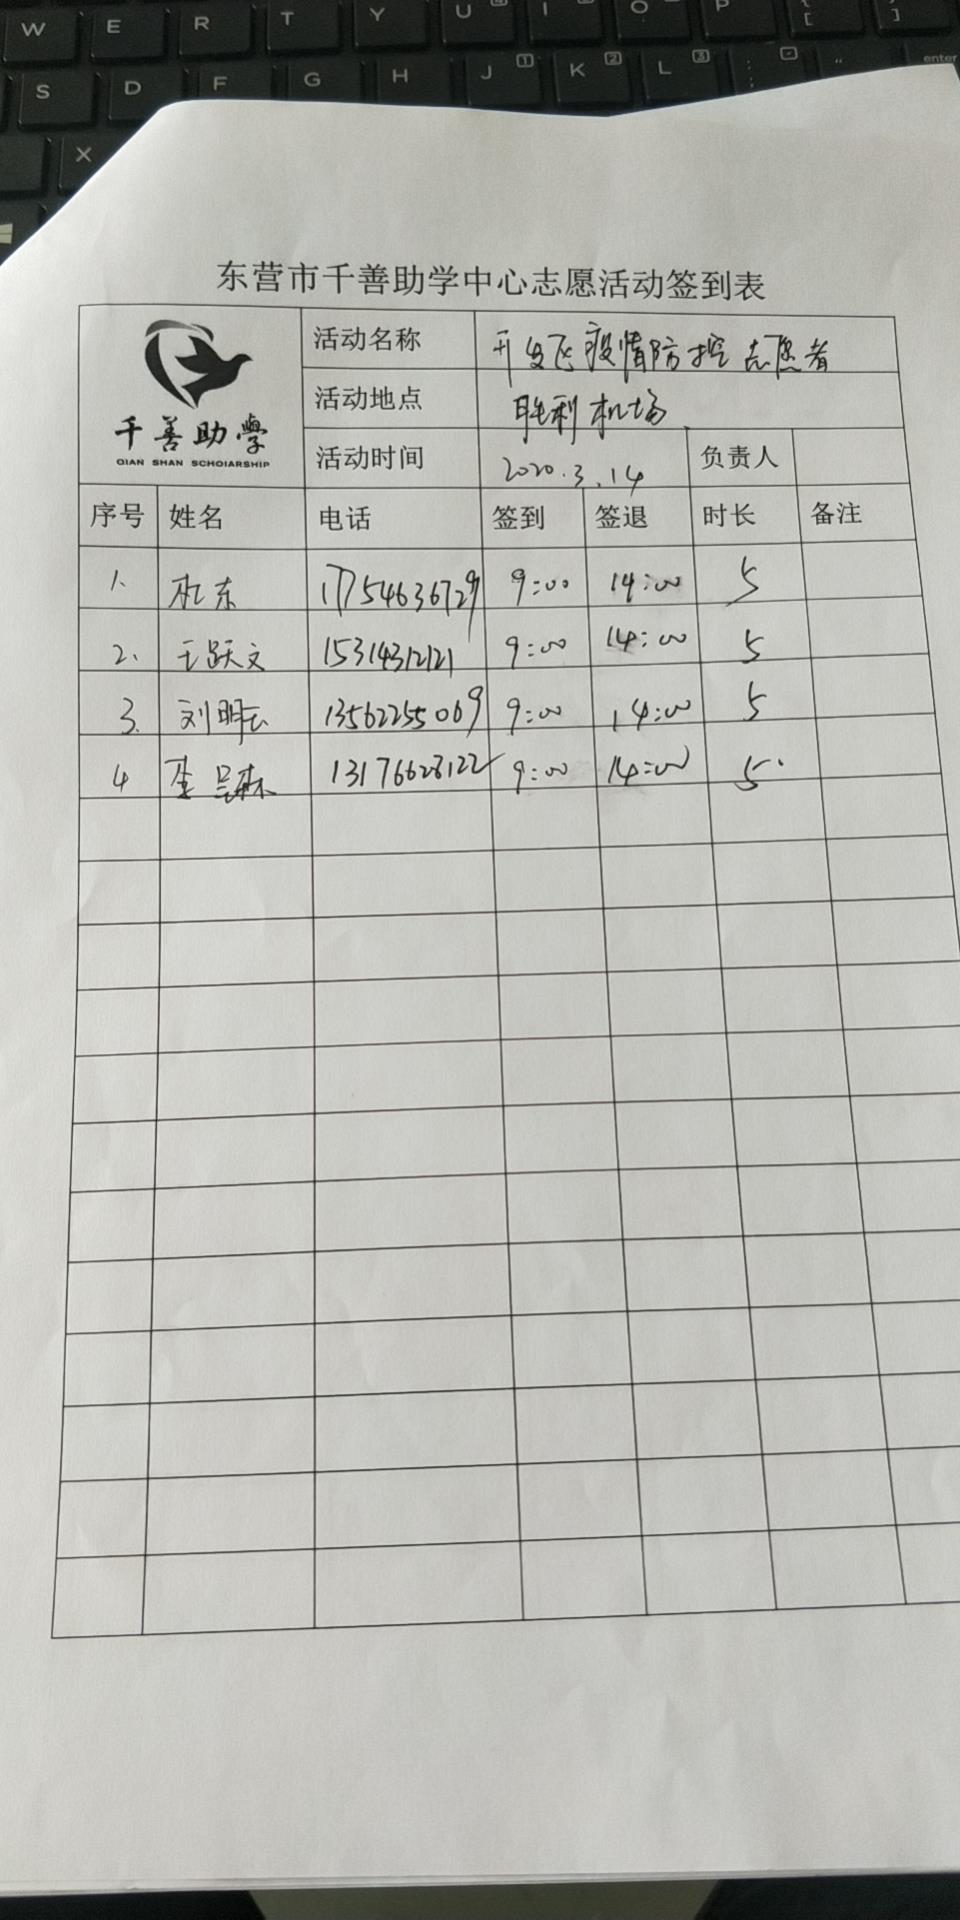 W E R T Y U I O P { [ } ]
S D F G H J 1 K 2 L 3 : ; " enter
X
东营市千善助学中心志愿活动签到表
千善助學
QIAN SHAN SCHOIARSHIP
活动名称 开发区疫情防控志愿者
活动地点 胜利机场
活动时间 2020.3.14 负责人
序号 姓名 电话 签到 签退 时长 备注
1. 杜东 17754636729 9:00 14:00 5
2. 王跃文 15314312121 9:00 14:00 5
3. 刘明云 13562255069 9:00 14:00 5
4 李 13176628122 9:00 14:00 5